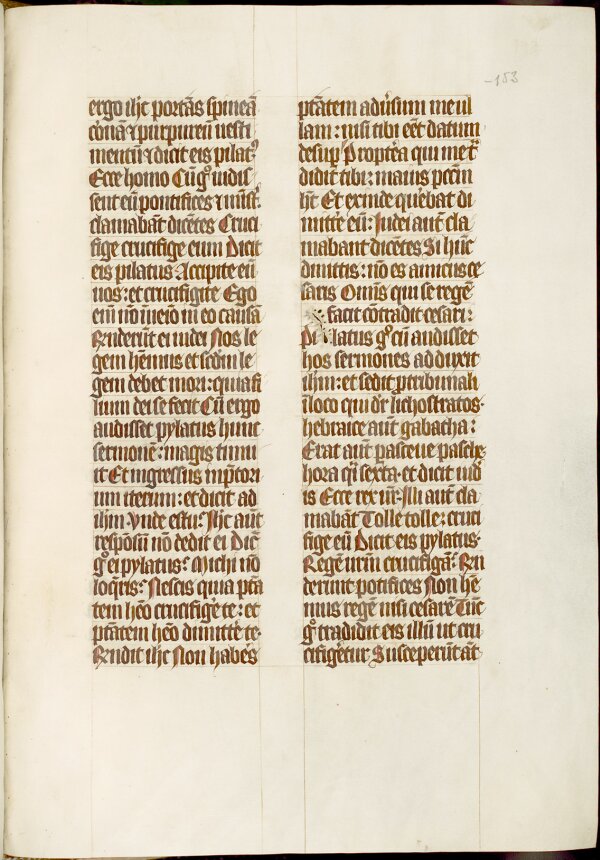 -153
ergo ih̄c portās spineā
coronā ⁊ purpureū uesti
mentū ⁊ dicit eis pilatꝰ
Ecce homo Cū gͦ uidis
sent eū pontifices ⁊ minist̄
clamabāt dicētes Cruci
fige crucifige eum Dicit
eis pilatus Accipite eū
uos : et crucifigite Ego
eni͞ nō inuēio in eo causā
Rn̄derūt ei iudei Nos le
gem hēmus et scd̄m le
gem debet mori : quia fi
lium dei se fecit Cū ergo
audisset pylatus hunc
sermonē : magis timu
it Et ingressus ē p̄tori
um iterum : et dicit ad
ihm̄ Vnde es tu : Ih̄c aūt
respōsū nō dedit ei Dic̄
gͦ ei pylatus : Michi nō
loq̄ris : Nescis quia ptā
tem hēo crucifigē te : et
ptātem hēo dimittē te ·
Rn̄dit ih̄c Non habēs
ptātem aduīsum me ul
lam : nisi tibi eēt datum
desup̄ Propt̄ea qui me t̄
didit tibi : maius pccm̄
h̄t Et exinde querebāt di
mittē eū : Iudei aūt cla
mabant dicētes Si hūc
dimittis : nō es amicus ce
saris Omīs qui se regē
facit cōtradit cesari :
Pilatus gͦ cū audisset
hos sermones adduxit
ihm̄ : et sedit p tribunali
ī loco qui dr̄ lichostratos ·
hebraice aūt gabatha :
Erat aūt pasceue pasche
hora q̄i sexta · et dicit iud̄
is Ecce rex ur̄ · Illi aūt cla
mabāt Tolle tolle : cruci
fige eū Dicit eis pylatus ·
Regē urm̄ crucifigā : Rn̄
derunt pōtifices Non hē
mus regē nisi cesarē Tūc
gͦ tradidit eis illū ut cru
cifiget̄ur Susceperūt aūt